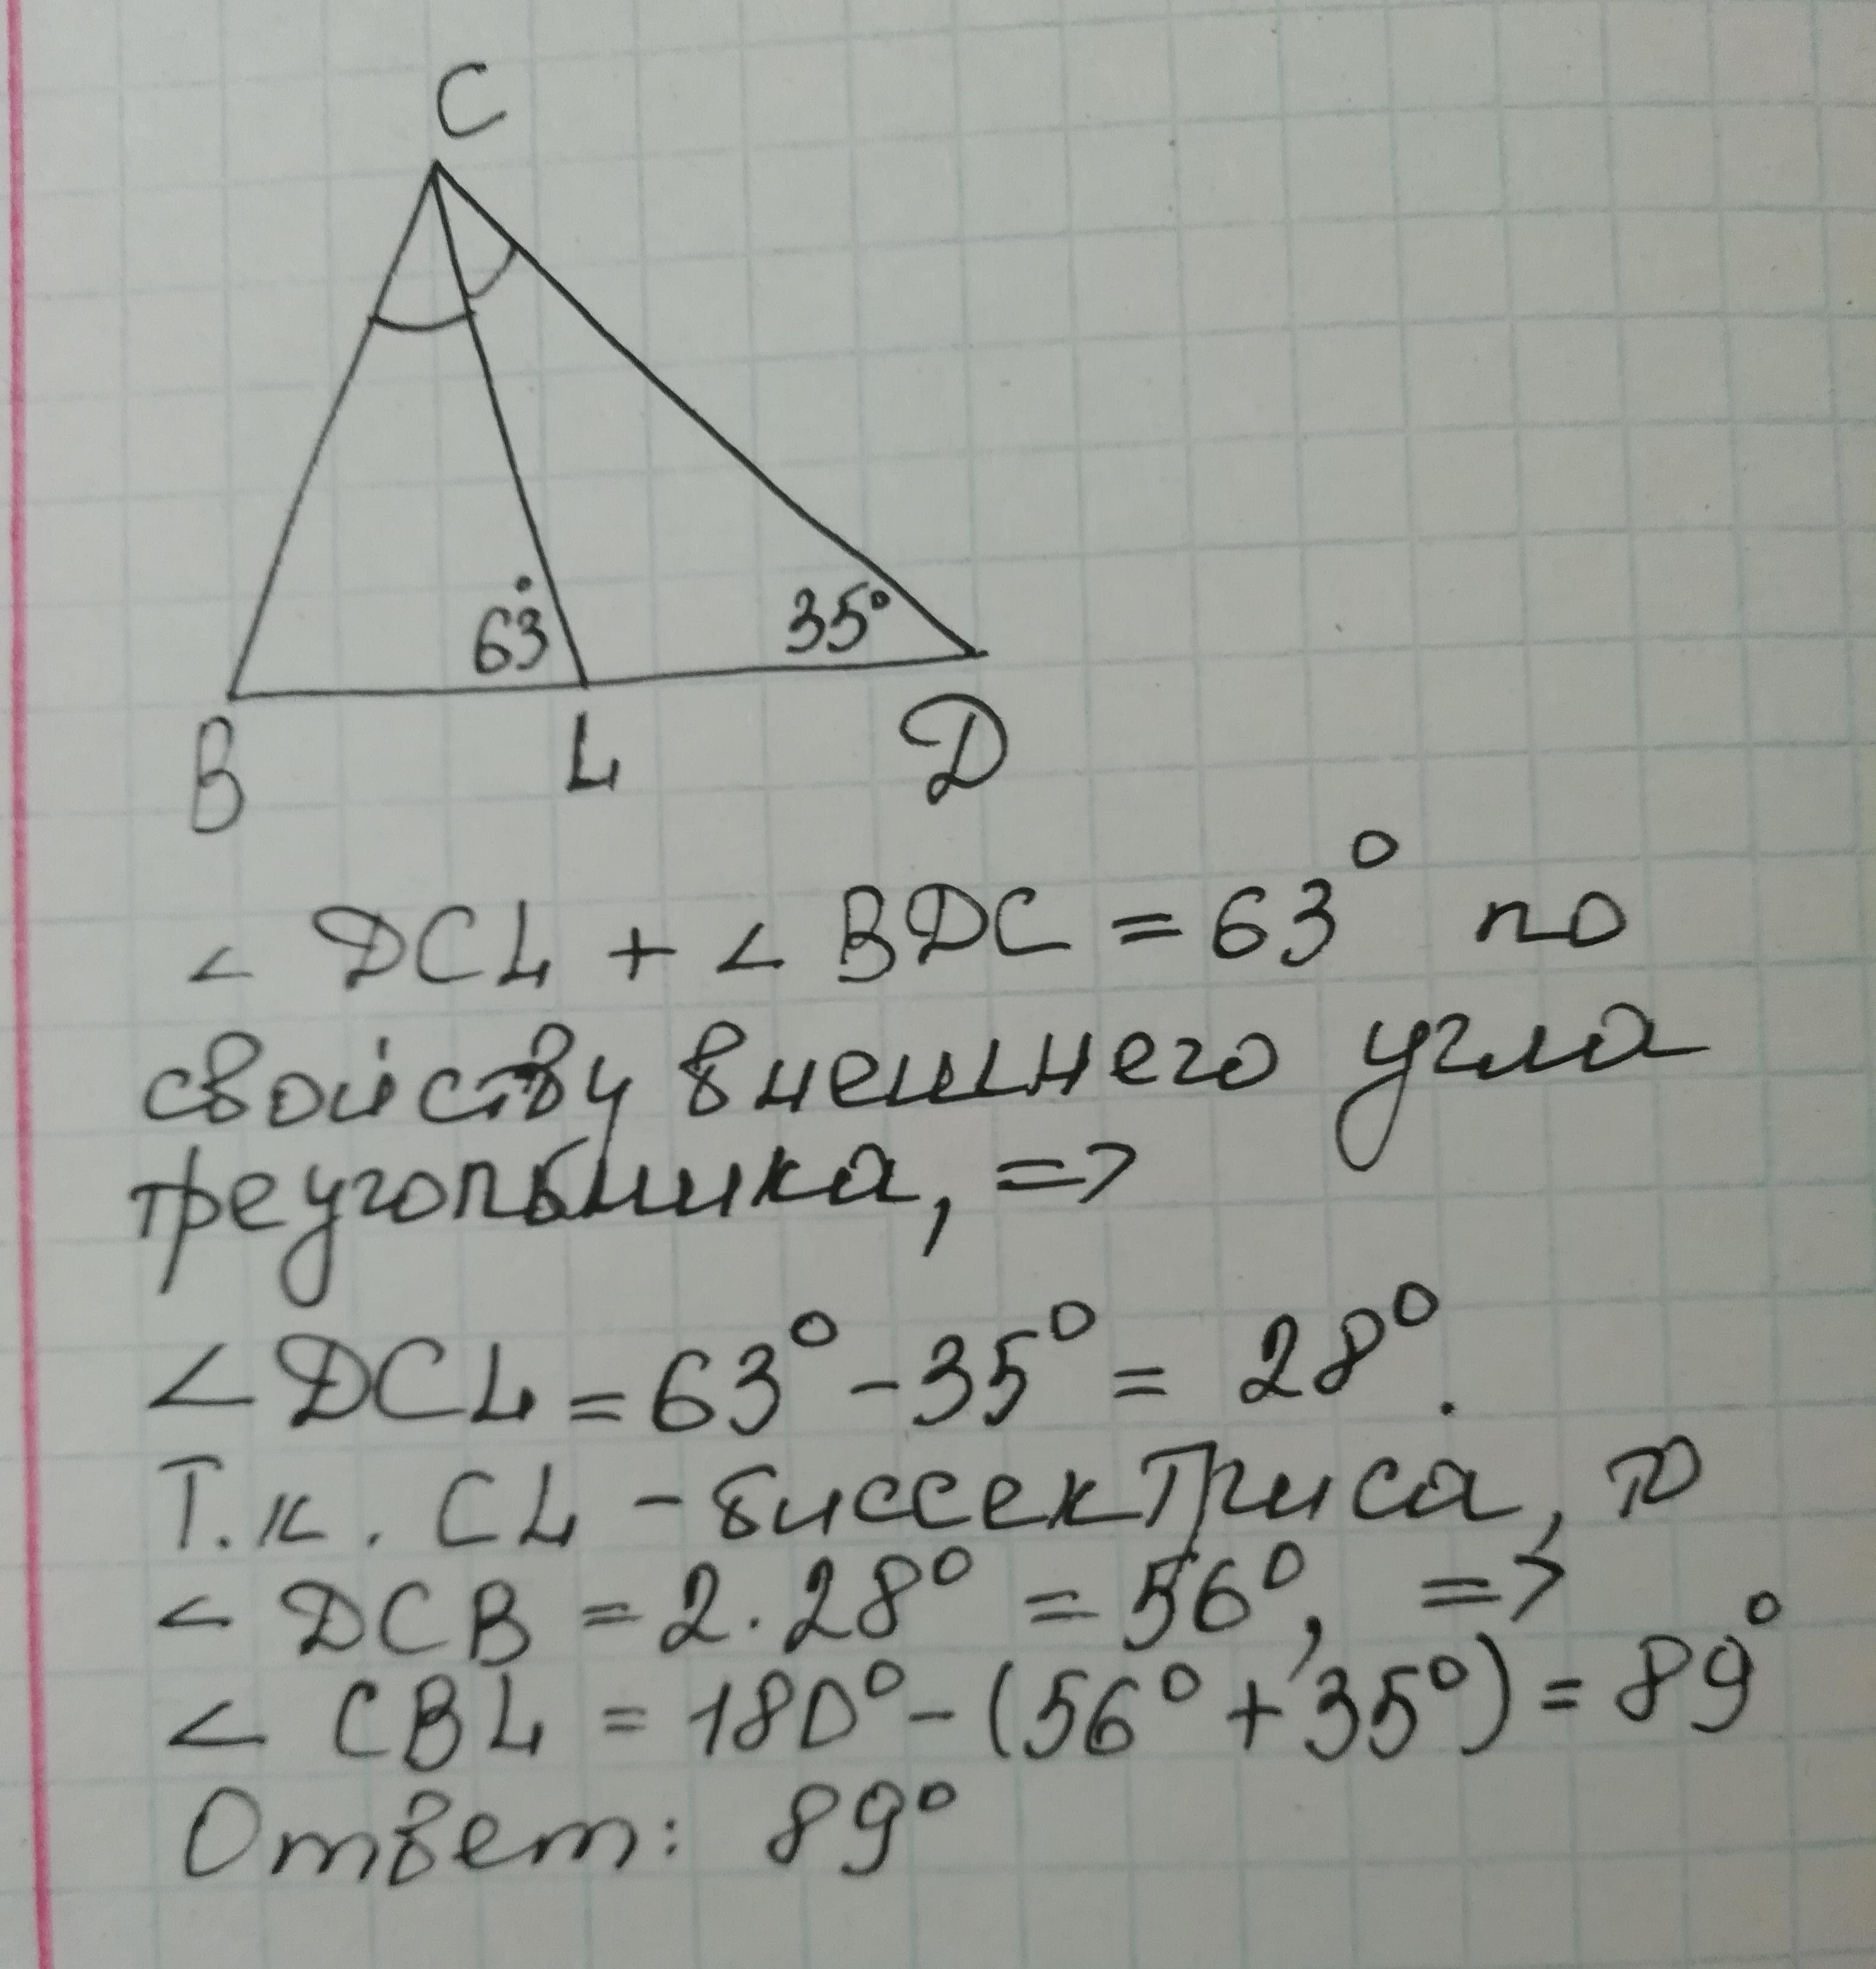 C
63°
35°
B
L
D
∠ DCL + ∠ BDC = 63° по
свойству внешнего угла
треугольника, =>
∠DCL = 63° - 35° = 28°.
Т.к. CL - биссектриса, то
∠ DCB = 2 · 28° = 56°, =>
∠ CBL = 180° - (56° + 35°) = 89°
Ответ: 89°